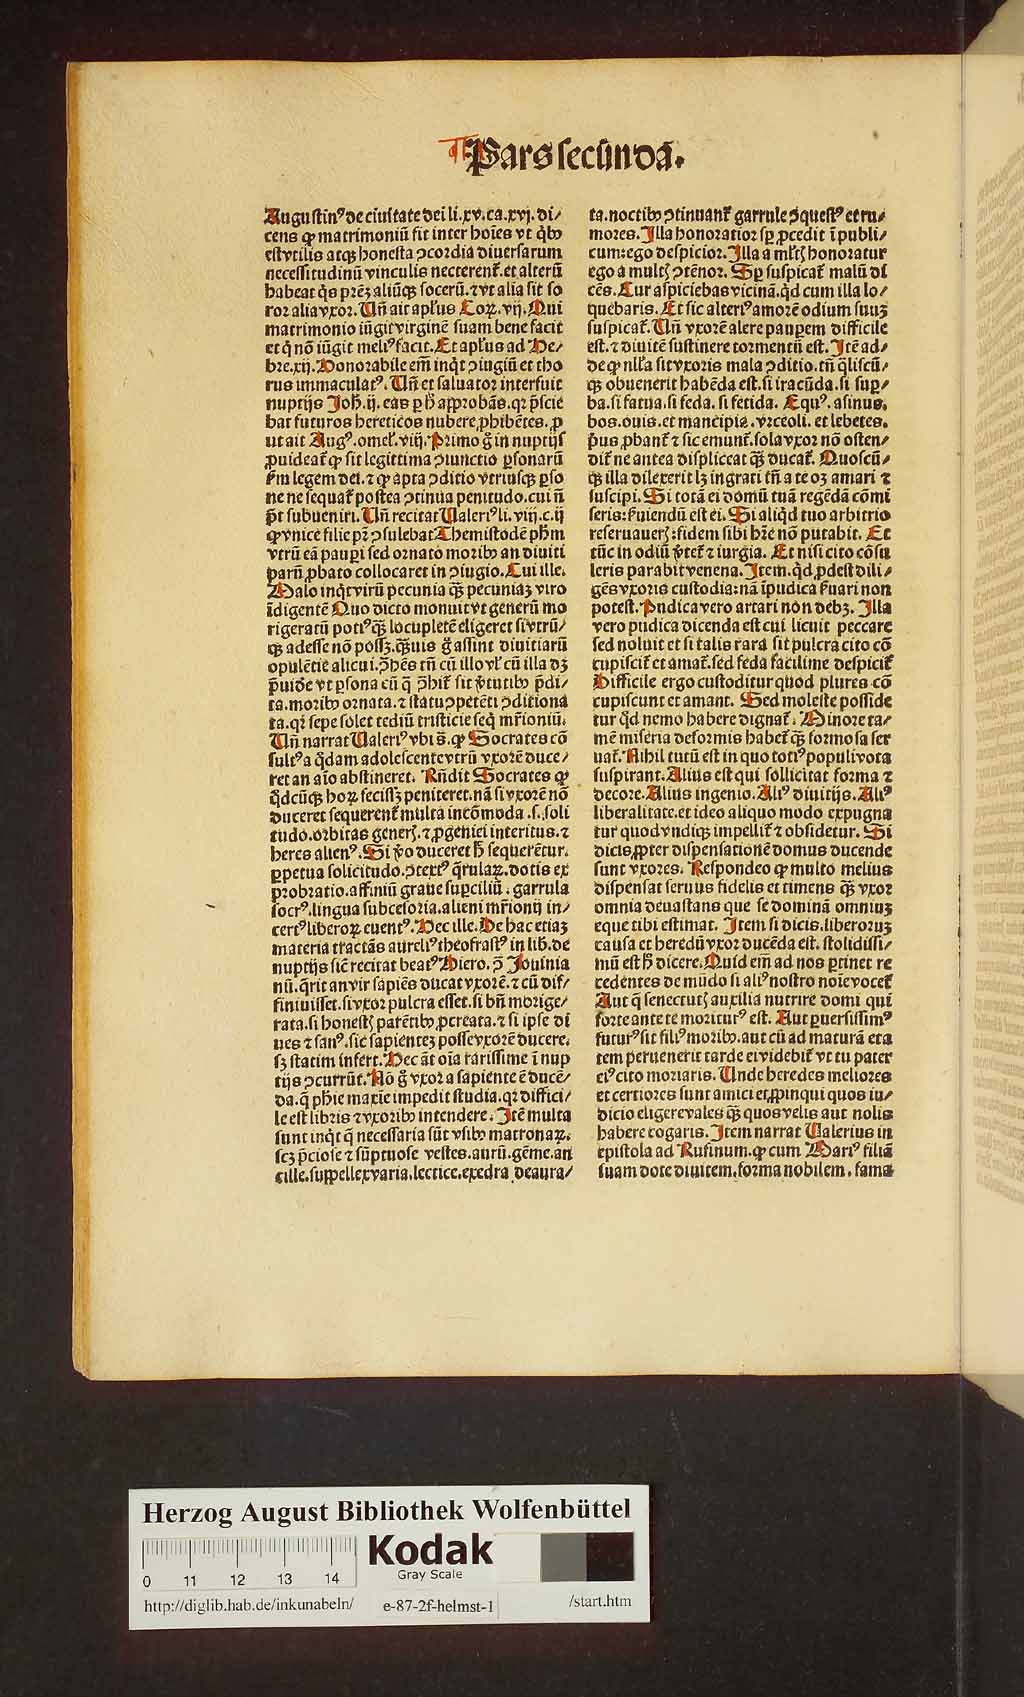 Pars secūnda.
Augustinꝰ de ciuitate dei li. xv. ca. xvj. di⸗
cens ꝙ matrimoniū fit inter hoīes vt qͥbꝰ
est vtilis atqꝫ honesta ↄcordia diuersarum
necessitudinū vinculis necterenť. et alterū
habeat qͥs prēꝫ aliūqꝫ socerū. ⁊ vt alia sit so
ror alia vxor. Uñ ait apłus Coꝝ. vij. Qui
matrimonio iūgit virginē suam bene facit
et qͥ nō iūgit meliꝰ facit. Et apłus ad He⸗
bre. xij. Honorabile em̄ inqͥt ↄiugiū et tho
rus immaculatꝰ. Uñ et saluator interfuit
nuptijs Joh̄. ij. eas ꝑ h̄ approbās. qꝛ p̄scie
bat futuros hereticos nubere ꝓhibētes. ꝓ
ut ait Augꝰ. omeł. viij. Primo g̊ in nuptijs
ꝓuideať ꝙ sit legittima ↄiunctio ꝑsonarū
ẜm legem dei. ⁊ ꝙ apta ↄditio vtriusqꝫ ꝑso
ne ne sequať postea ↄtinua penitudo. cui ñ
p̄t subueniri. Uñ recitat Ualeriꝰ li. viij. c. ij
ꝙ vnice filie pr̄ ↄsulebat Themistodē ph̄m
vtrū eā pauꝑi sed ornato moribꝰ an diuiti
parū ꝓbato collocaret in ↄiugio. Cui ille.
Malo inqͥt virū pecunia qꝫ̄ pecuniaꝫ viro
īdigentē Quo dicto monuit vt generū mo
rigeratū potiꝰ qꝫ̄ locupletē eligeret si vtrū⸗
qꝫ adesse nō possꝫ. qꝫ̄uis g̊ assint diuitiarū
opulētie alicui. ꝓhēs tñ cū illo vł cū illa dꝫ
p̄uide vt ꝑsona cū q̄ ꝓhiť sit v̓tutibꝰ p̄di⸗
ta. moribꝰ ornata. ⁊ statu ↄpetēti ↄditiona
ta. qꝛ sepe solet tediū tristicie seq̄ mr̄ioniū.
Uñ narrat Ualeriꝰ vbi s̄. ꝙ Socrates cō
sultꝰ a qͦdam adolescente vtrū vxorē duce⸗
ret an aīo abstineret. Rñdit Socrates ꝙ
qͦdcūqꝫ hoꝝ fecissꝫ peniteret. nā si vxorē nō
duceret sequerenť multa incōmoda. s. soli
tudo. orbitas generꝭ. ⁊ ꝓgeniei interitus. ⁊
heres alienꝰ. Si v̓o duceret h̄ sequerētur.
ꝑpetua solicitudo. ↄtextꝰ q̄rulaꝝ. dotis ex
ꝓbratio. affiniū graue suꝑciliū. garrula
socrꝰ. lingua subcesoria. alieni mr̄ionij in⸗
certꝰ liberoꝝ euentꝰ. Hec ille. De hac etiaꝫ
materia tractās aureliꝰ theofrastꝰ in lib. de
nuptijs sicͭ recitat beatꝰ Hiero. ↄ̄ Jouinia
nū. q̄rit an vir sapiēs ducat vxorē. ⁊ cū dif⸗
finiuisset. si vxor pulcra esset. si bñ morige⸗
rata. si honestꝭ parētibꝰ ꝓcreata. ⁊ si ipse di
ues ⁊ sanꝰ. sic sapienteꝫ posse vxorē ducere.
sꝫ statim infert. Hec āt oīa rarissime ī nup
tijs ↄcurrūt. Nō g̊ vxor a sapiente ē ducē⸗
da. q̄ ph̄ie maxīe impedit studia. qꝛ diffici⸗
le est libris ⁊ vxoribꝰ intendere. Jtē multa
sunt inqͥt q̄ necessaria sūt vsibꝰ matronaꝝ.
scꝫ p̄ciose ⁊ sūptuose vestes. aurū. gēme. an
cille. supꝑellex varia. lectice. exedra deaura⸗
ta. noctibꝰ ↄtinuanť garrule ↄquestꝰ et ru⸗
mores. Jlla honoratior sꝑ ꝓcedit ī publi⸗
cum: ego despicior. Jlla a młtꝭ honoratur
ego a multꝭ ↄtēnor. Sꝑ suspicať malū di
cēs. Cur aspiciebas vicinā. qͥd cum illa lo⸗
quebaris. Et sic alteriꝰ amorē odium suuꝫ
suspicať. Uñ vxorē alere pauꝑem difficile
est. ⁊ diuitē sustinere tormentū est. Jtē ad⸗
de ꝙ nłła sit vxoris mala ↄditio. tñ q̄liscū⸗
qꝫ obuenerit habēda est. si iracūda. si suꝑ⸗
ba. si fatua. si feda. si fetida. Equꝰ. asinus.
bos. ouis. et mancipia. vrceoli. et lebetes.
pͥus ꝓbanť ⁊ sic emunť. sola vxor nō osten⸗
diť ne antea displiceat qꝫ̄ ducať. Quoscū⸗
qꝫ illa dilexerit lꝫ ingrati tñ a te oꝫ amari ⁊
suscipi. Si totā ei domū tuā regēdā cōmi
seris: ẜuiendū est ei. Si aliqͥd tuo arbitrio
reseruauerꝭ: fidem sibi hr̄e nō putabit. Et
tūc in odiū v̓teť ⁊ iurgia. Et nisi cito cōsu
leris parabit venena. Jtem. qͥd ꝓdest dili⸗
gēs vxoris custodia: nā īpudica ẜuari non
potest. Pudica vero artari non debꝫ. Jlla
vero pudica dicenda est cui licuit peccare
sed noluit et si talis rara sit pulcra cito cō
cupisciť et amať. sed feda facilime despiciť
Difficile ergo custoditur quod plures cō
cupiscunt et amant. Sed moleste posside
tur qͦd nemo habere dignať. Minore ta⸗
mē miseria deformis habeť qꝫ̄ formosa ser
uať. Nihil tutū est in quo totiꝰ populi vota
suspirant. Alius est qui sollicitat forma ⁊
decore. Alius ingenio. Aliꝰ diuitijs. Aliꝰ
liberalitate. et ideo aliquo modo expugna
tur quod vndiqꝫ impelliť ⁊ obsidetur. Si
dicis ꝓpter dispensationē domus ducende
sunt vxores. Respondeo ꝙ multo melius
dispensat seruus fidelis et timens qꝫ̄ vxor
omnia deuastans que se dominā omniuꝫ
eque tibi estimat. Jtem si dicis. liberoruꝫ
causa et heredū vxor ducēda est. stolidissi⸗
mū est h̄ dicere. Quid em̄ ad nos ꝑtinet re
cedentes de mūdo si aliꝰ nostro noīe voceť
Aut q̄ senectutꝭ auxilia nutrire domi qui
forte ante te morituꝰ est. Aut ꝑuersissimꝰ
futurꝰ sit filiꝰ moribꝰ. aut cū ad maturā eta
tem peruenerit tarde ei videbiť vt tu pater
eiꝰ cito moriaris. Unde heredes meliores
et certiores sunt amici et ꝓpinqui quos iu⸗
dicio eligere vales qꝫ̄ quos velis aut nolis
habere cogaris. Jtem narrat Ualerius in
epistola ad Rufinum. ꝙ cum Mariꝰ filiā
suam dote diuitem. forma nobilem. fama
Herzog August Bibliothek Wolfenbüttel
0 11 12 13 14
Kodak
Gray Scale
http://diglib.hab.de/inkunabeln/ e-87-2f-helmst-1 /start.htm